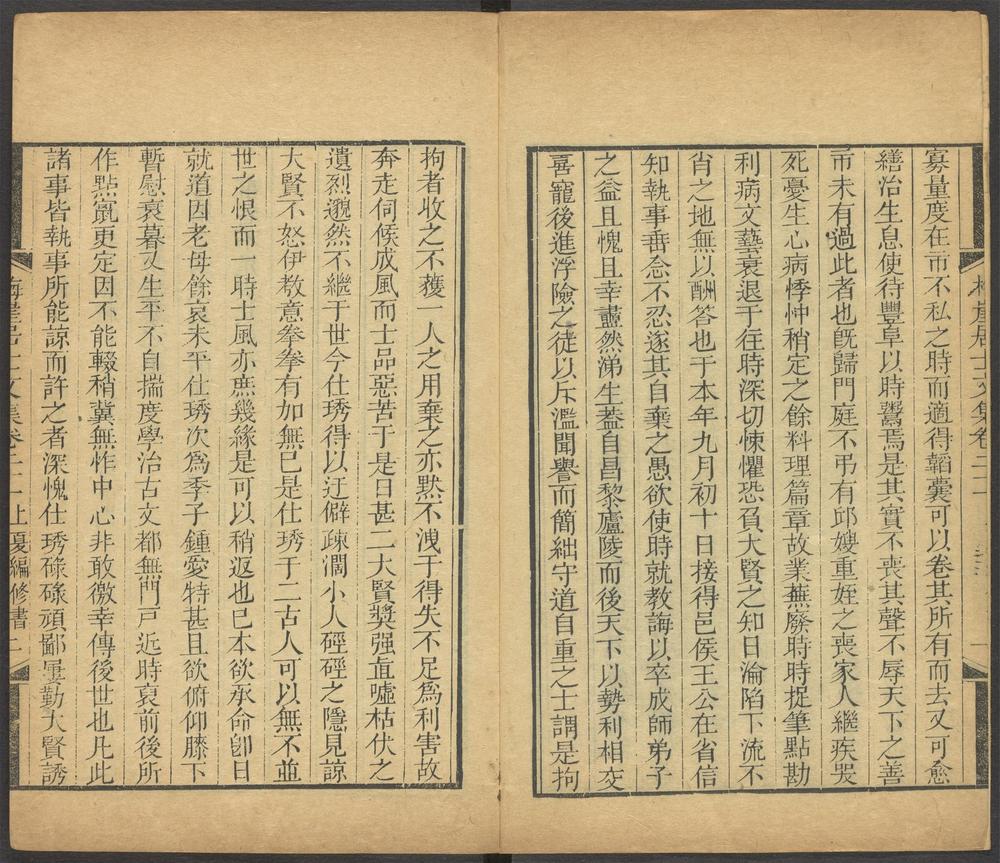 寡量度在市不私之時而適得韜囊可以卷其所有而去又可愈
繕治生息使待豐阜以時鬻焉是其實不喪其聲不辱天下之善
市未有過此者也旣歸門庭不弔有邱嫂重姪之喪家人繼疾哭
死憂生心病悸忡稍定之餘料理篇章故業蕪廢時時捉筆點勘
利病文藝衰退于往時深切悚懼恐負大賢之知日淪陷下流不
肖之地無以酬答也于本年九月初十日接得邑侯王公在省信
知執事垂念不忍遂其自棄之愚欲使時就教誨以卒成師弟子
之益且愧且幸衋然涕生葢自昌黎廬陵而後天下以勢利相交
喜寵後進浮險之徒以斥濫聞譽而簡絀守道自重之士謂是拘
拘者收之不獲一人之用棄之亦默不洩于得失不足爲利害故
奔走伺候成風而士品惡苦于是日甚二大賢奬强直噓枯伏之
遺烈邈然不繼于世今仕琇得以迂僻疎濶小人硜硜之隱見諒
大賢不怒伊教意拳拳有加無已是仕琇于二古人可以無不並
世之恨而一時士風亦庶幾緣是可以稍返也巳本欲承命卽日
就道因老母餘哀未平仕琇次爲季子鍾愛特甚且欲俯仰膝下
暫慰衰暮又生平不自揣度學治古文都無門戸近時裒前後所
作點竄更定因不能輟稍冀無怍中心非敢徼幸傳後世也凡此
諸事皆執事所能諒而許之者深愧仕琇碌碌頑鄙屢勤大賢誘
梅崖居士文集卷二十一 上夏編修書 二